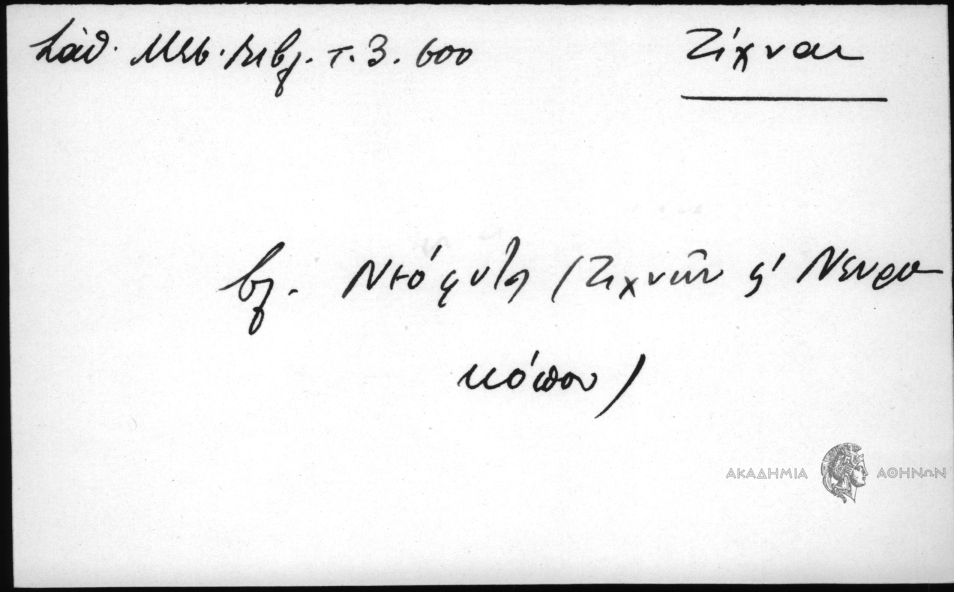 Σάθ. Μεσ. Βιβλ. τ. 3. 600
Ζίχναι
βλ. (Ζιχνῶν ϛ' Νευρο
κόπου)
ΑΚΑΔΗΜΙΑ ΑΘΗΝΩΝ